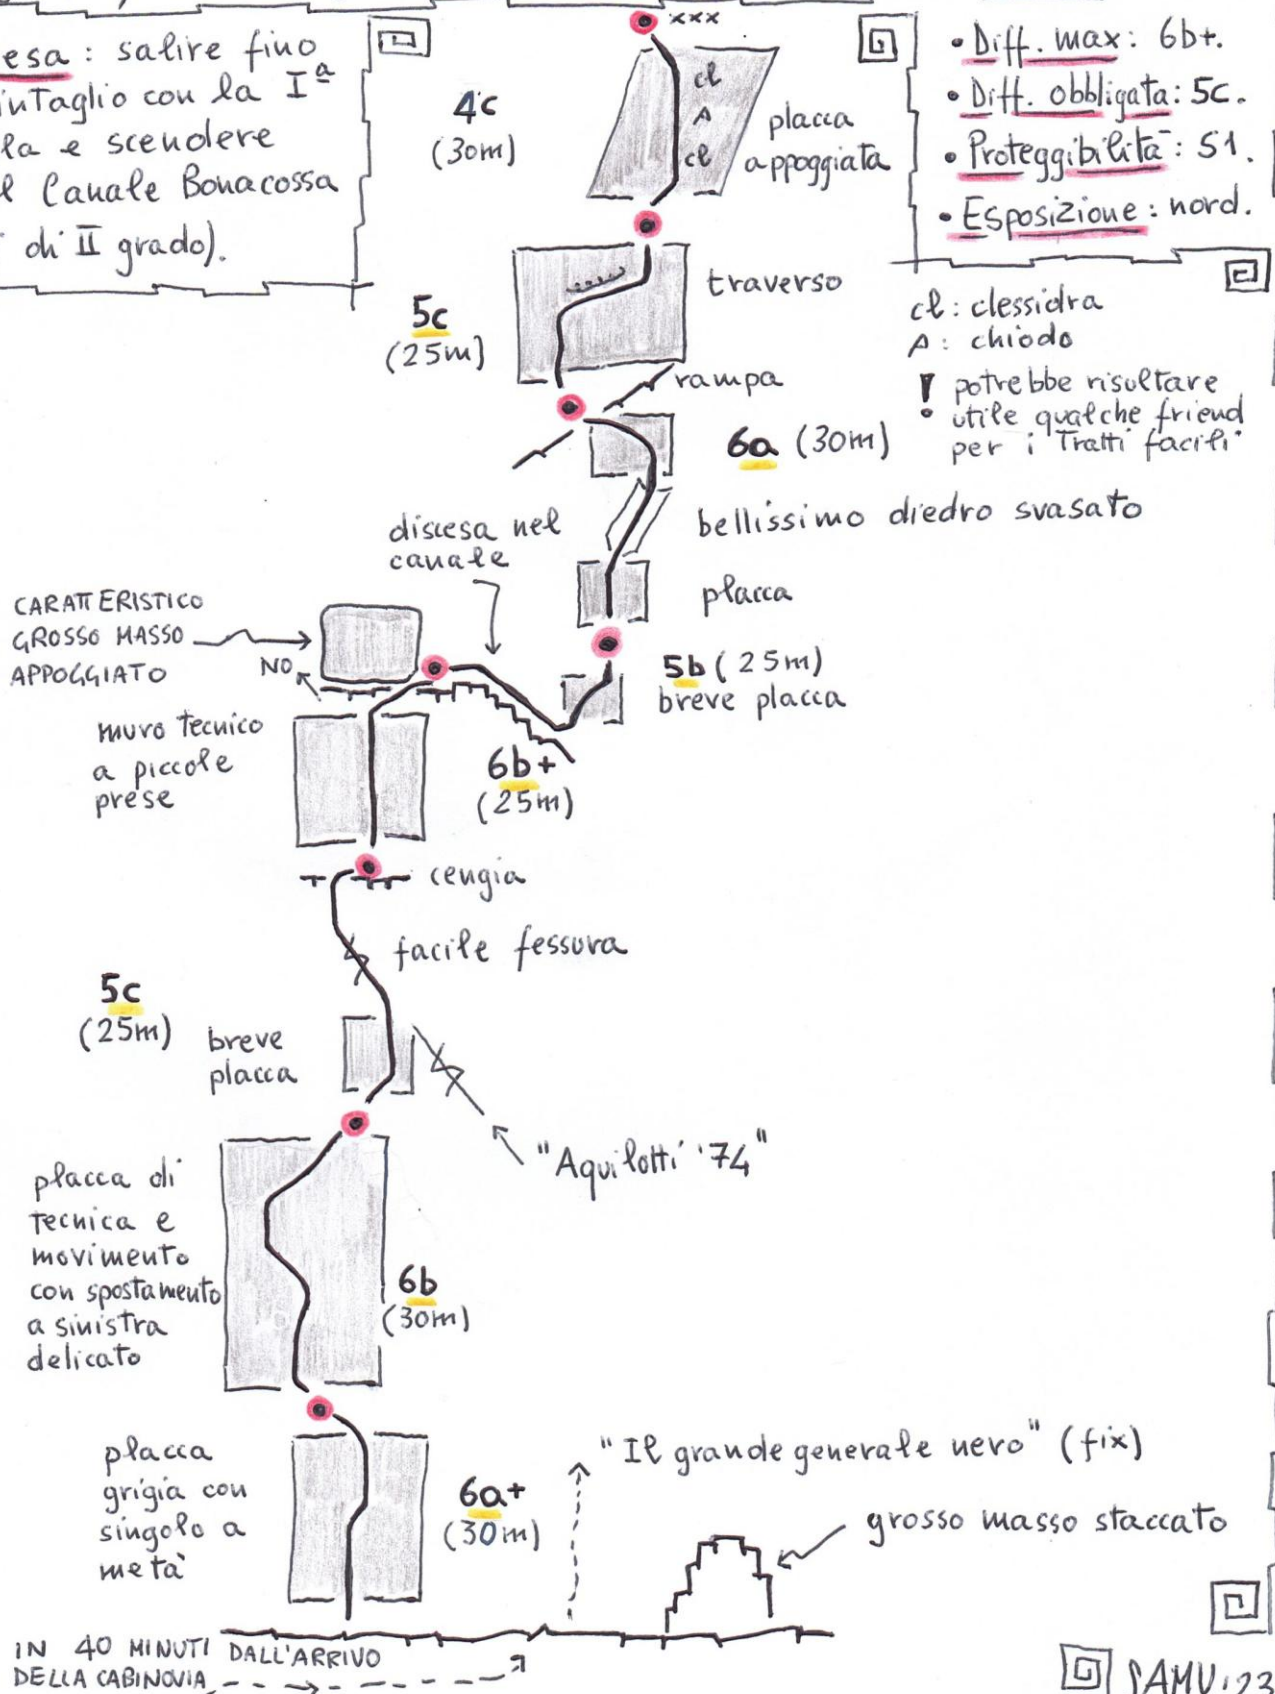 esa : salire fino
intaglio con la Iª
la e scendere
l Canale Bonacossa
di II grado).
xxx
4c
(30m)
cl
A
cl
placca
appoggiata
• Diff. max: 6b+.
• Diff. obbligata: 5c.
• Proteggibilità: S1.
• Esposizione: nord.
cl: clessidra
A: chiodo
! potrebbe risultare
utile qualche friend
per i tratti facili
traverso
5c
(25m)
rampa
6a (30m)
bellissimo diedro svasato
discesa nel
canale
placca
CARATTERISTICO
GROSSO MASSO
APPOGGIATO
NO
5b (25m)
breve placca
muro tecnico
a piccole
prese
6b+
(25m)
cengia
facile fessura
5c
(25m)
breve
placca
"Aquilotti '74"
placca di
tecnica e
movimento
con spostamento
a sinistra
delicato
6b
(30m)
placca
grigia con
singolo a
metà
6a+
(30m)
"Il grande generale nero" (fix)
grosso masso staccato
IN 40 MINUTI DALL'ARRIVO
DELLA CABINOVIA
SAMU '23